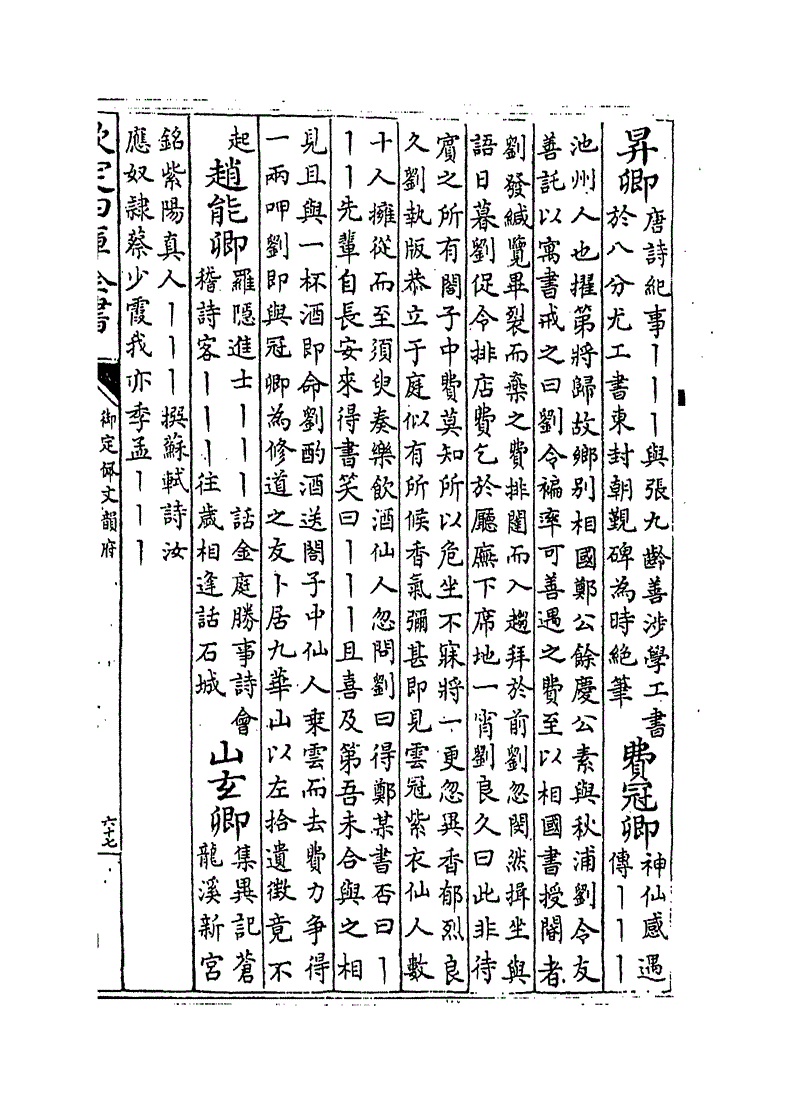 昇卿
唐詩紀事丨丨丨與張九齡善涉學工書
於八分尤工書東封朝覲碑為時絶筆
費冠卿
神仙感遇
傳丨丨丨
池州人也擢第將歸故鄉别相國鄭公餘慶公素與秋浦劉令友
善託以寓書戒之曰劉令褊率可善遇之費至以相國書授閽者
劉發緘覽畢裂而棄之費排闥而入趨拜於前劉忽閔然揖坐與
語日暮劉促令排店費乞於廳廡下席地一宵劉良久曰此非待
賔之所有閤子中費莫知所以危坐不寐將一更忽異香郁烈良
久劉執版恭立于庭似有所候香氣彌甚即見雲冠紫衣仙人數
十人擁從而至須臾奏樂飲酒仙人忽問劉曰得鄭某書否曰丨
丨丨先輩自長安來得書笑曰丨丨丨且喜及第吾未合與之相
見且與一杯酒即命劉酌酒送閤子中仙人乘雲而去費力争得
一兩呷劉即與冠卿為修道之友卜居九華山以左拾遺徵竟不
起
趙能卿
羅隱進士丨丨丨話金庭勝事詩會
稽詩客丨丨丨往歲相逢話石城
山玄卿
集異記蒼
龍溪新宫
銘紫陽真人丨丨丨撰蘇軾詩汝
應奴隷蔡少霞我亦季孟丨丨丨
欽定四庫全書
御定佩文韻府
六十七